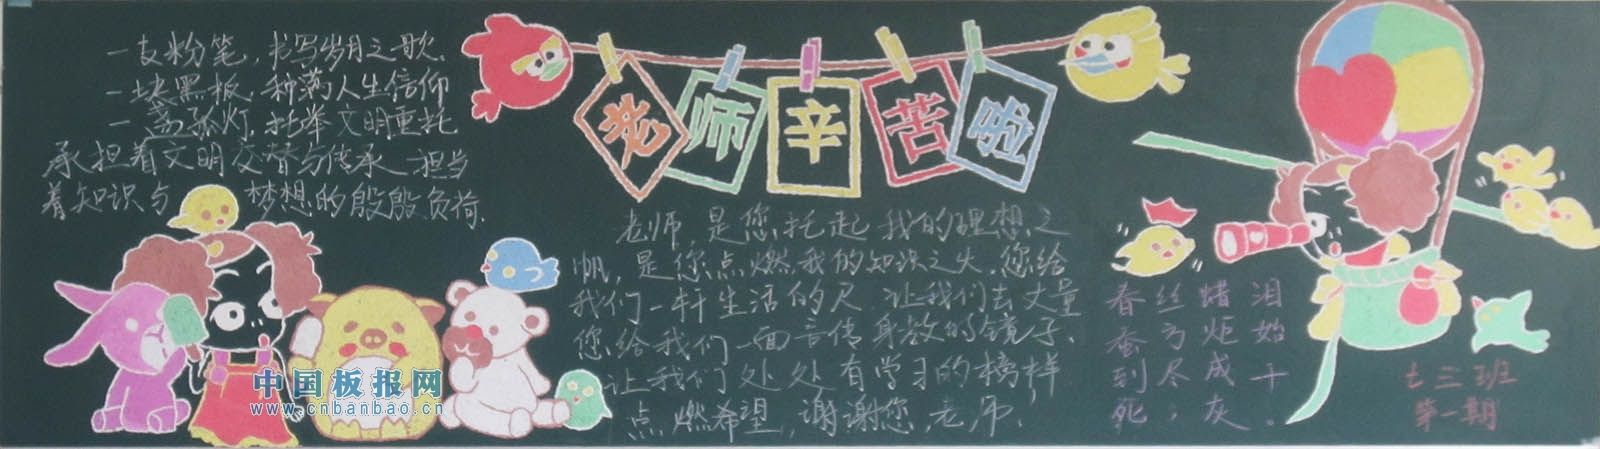 一支粉笔,书写岁月之歌.
一块黑板,种满人生信仰
一盏孤灯,托举文明重托
承担着文明交替与传承,担当
着知识与 梦想的殷殷负荷.
老师辛苦啦
老师,是您托起我的理想之
帆,是您点燃我的知识之火.您给
我们一杆生活的尺 让我们去丈量
您给我们一面言传身教的镜子.
让我们处处有学习的榜样
点燃希望,谢谢您,老师!
春蚕到死
丝方尽;
蜡炬成灰
泪始干.
七三班
第一期
中国板报网
www.cnbanbao.cn